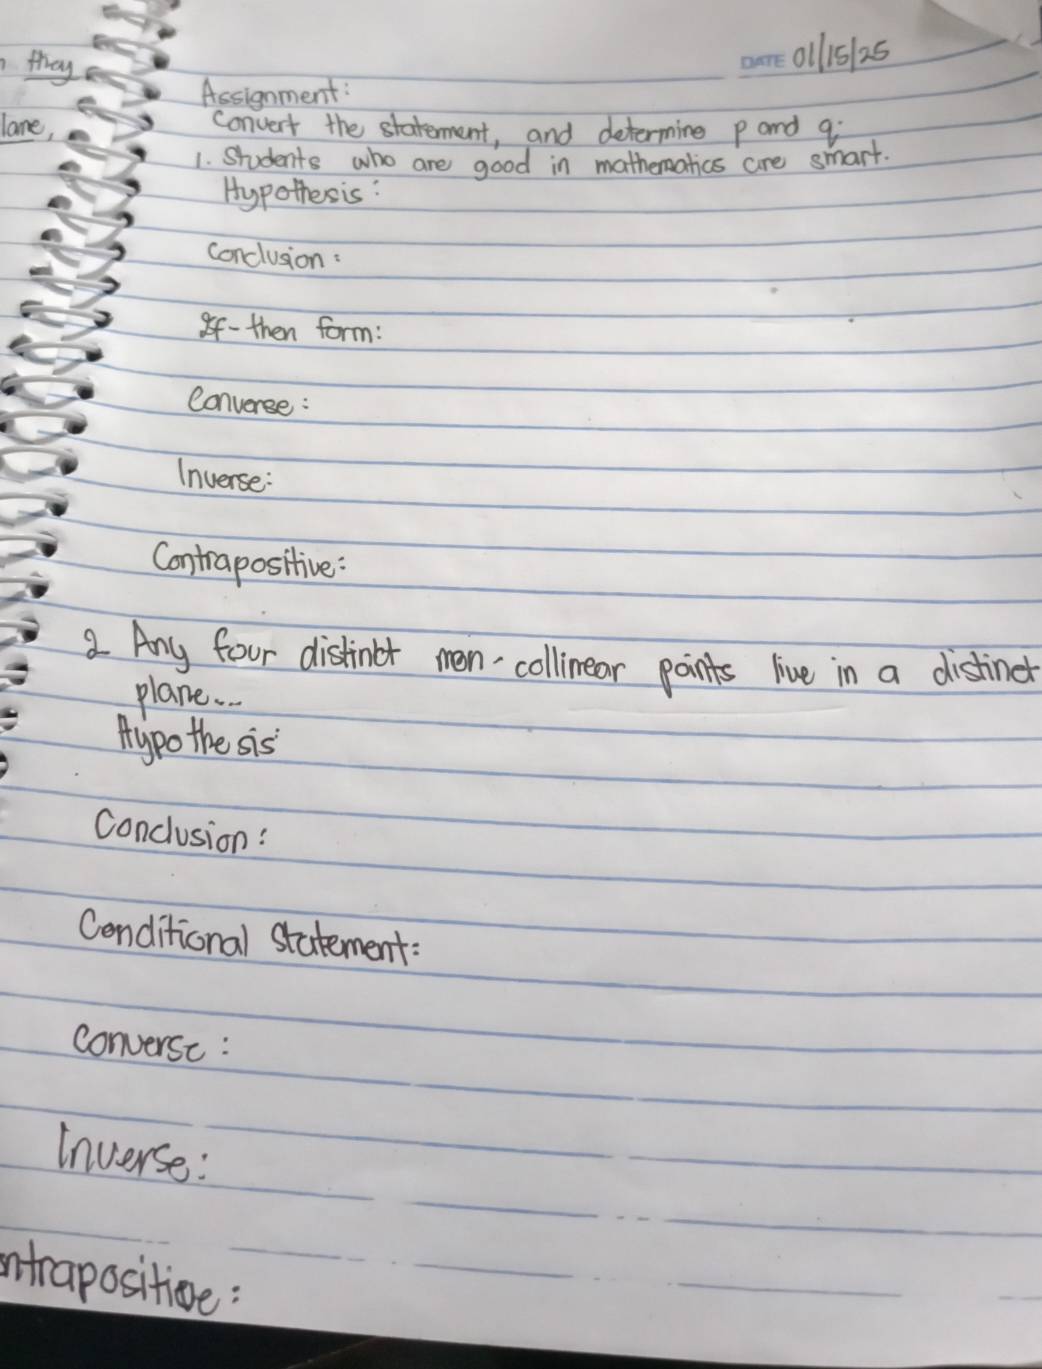 they
lane,
DATE 01/15/25
Assignment:
Convert the statement, and determine p and q.
1. Students who are good in mathematics are smart.
Hypothesis:
Conclusion:
If-then form:
Converse:
Inverse:
Contrapositive:
2 Any four distinct non-collinear points live in a distinct
plane...
Hypothesis:
Conclusion:
Conditional Statement:
Converse:
Inverse:
ntrapositive: